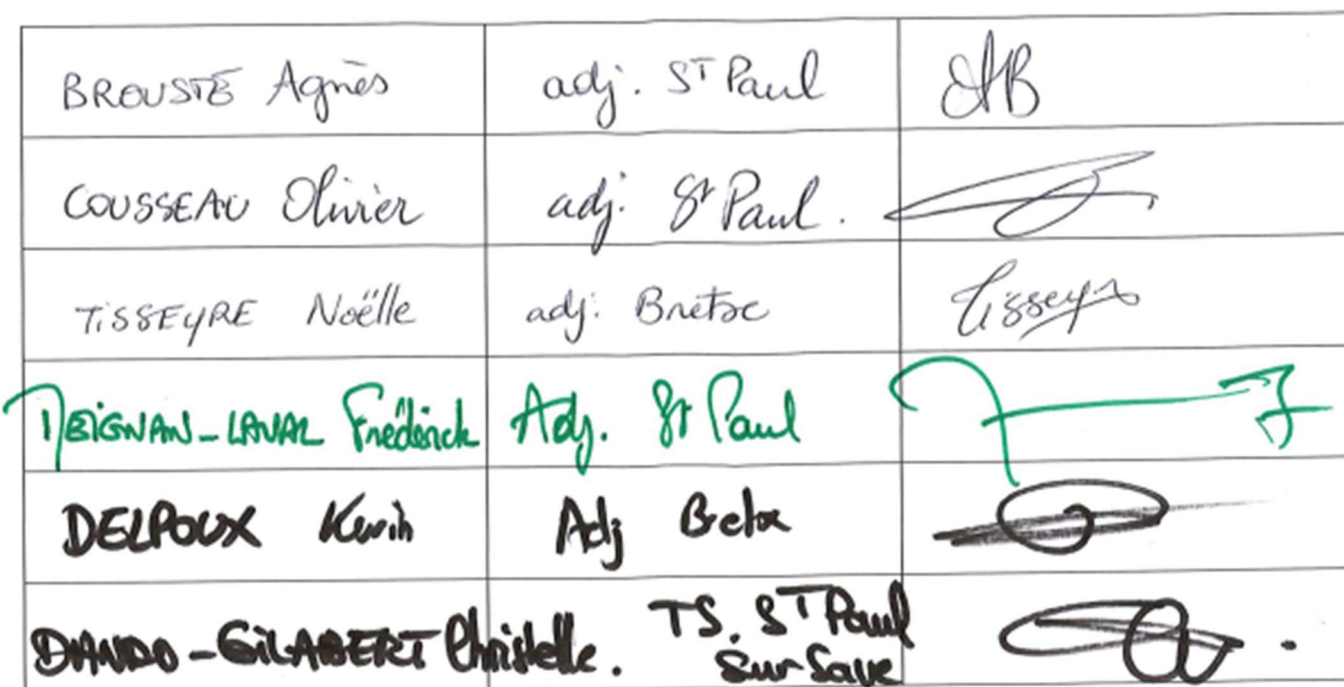 BROUSTE Agnès adj. St Paul AB
COUSSEAU Olivier adj. St Paul.
TISSEYRE Noëlle adj. Bretx Tisseyre
MEIGNAN-LAVAL Frédérick Adj. St Paul
DELPOUX Kevin Adj Bretx
DIANDO-GILABERT Christelle. TS. ST Paul
Sur Save